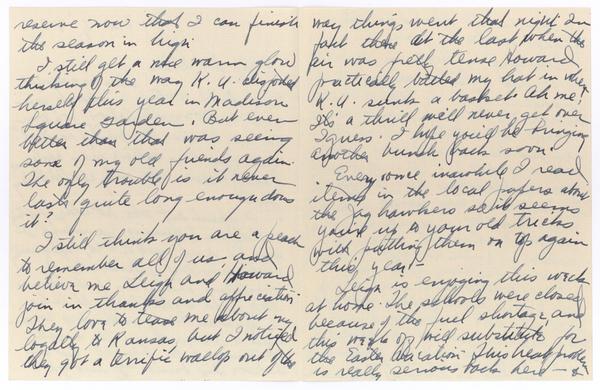 reserve now that I can finish
the season in high.
I still get a nice warm glow
thinking of the way K. U. enjoyed
herself this year in Madison
Square Garden. But even
better than that was seeing
some of my old friends again.
The only trouble is it never
lasts quite long enough does
it?
I still think you are a peach
to remember all of us and
believe me Leigh and Howard
join in thanks and appreciation.
They love to tease me about my
loyalty to Kansas, but I noticed
they got a terrific wallop out of the
way things went that night. In
fact there at the last when the
air was pretty tense Howard
practically batted my hat in when
K. U. sunk a basket. Ah me!
It's a thrill we'll never get over
I guess. I hope you'll be bringing
another bunch back soon.
Every once in awhile I read
items in the local papers about
the Jayhawkers so it seems
you're up to your old tricks
with putting them on top again
this year!
Leigh is enjoying this week
at home. The schools were closed
because of the fuel shortage, and
this week off will substitute for
the Easter vacation. This heat problem
is really serious back here - &